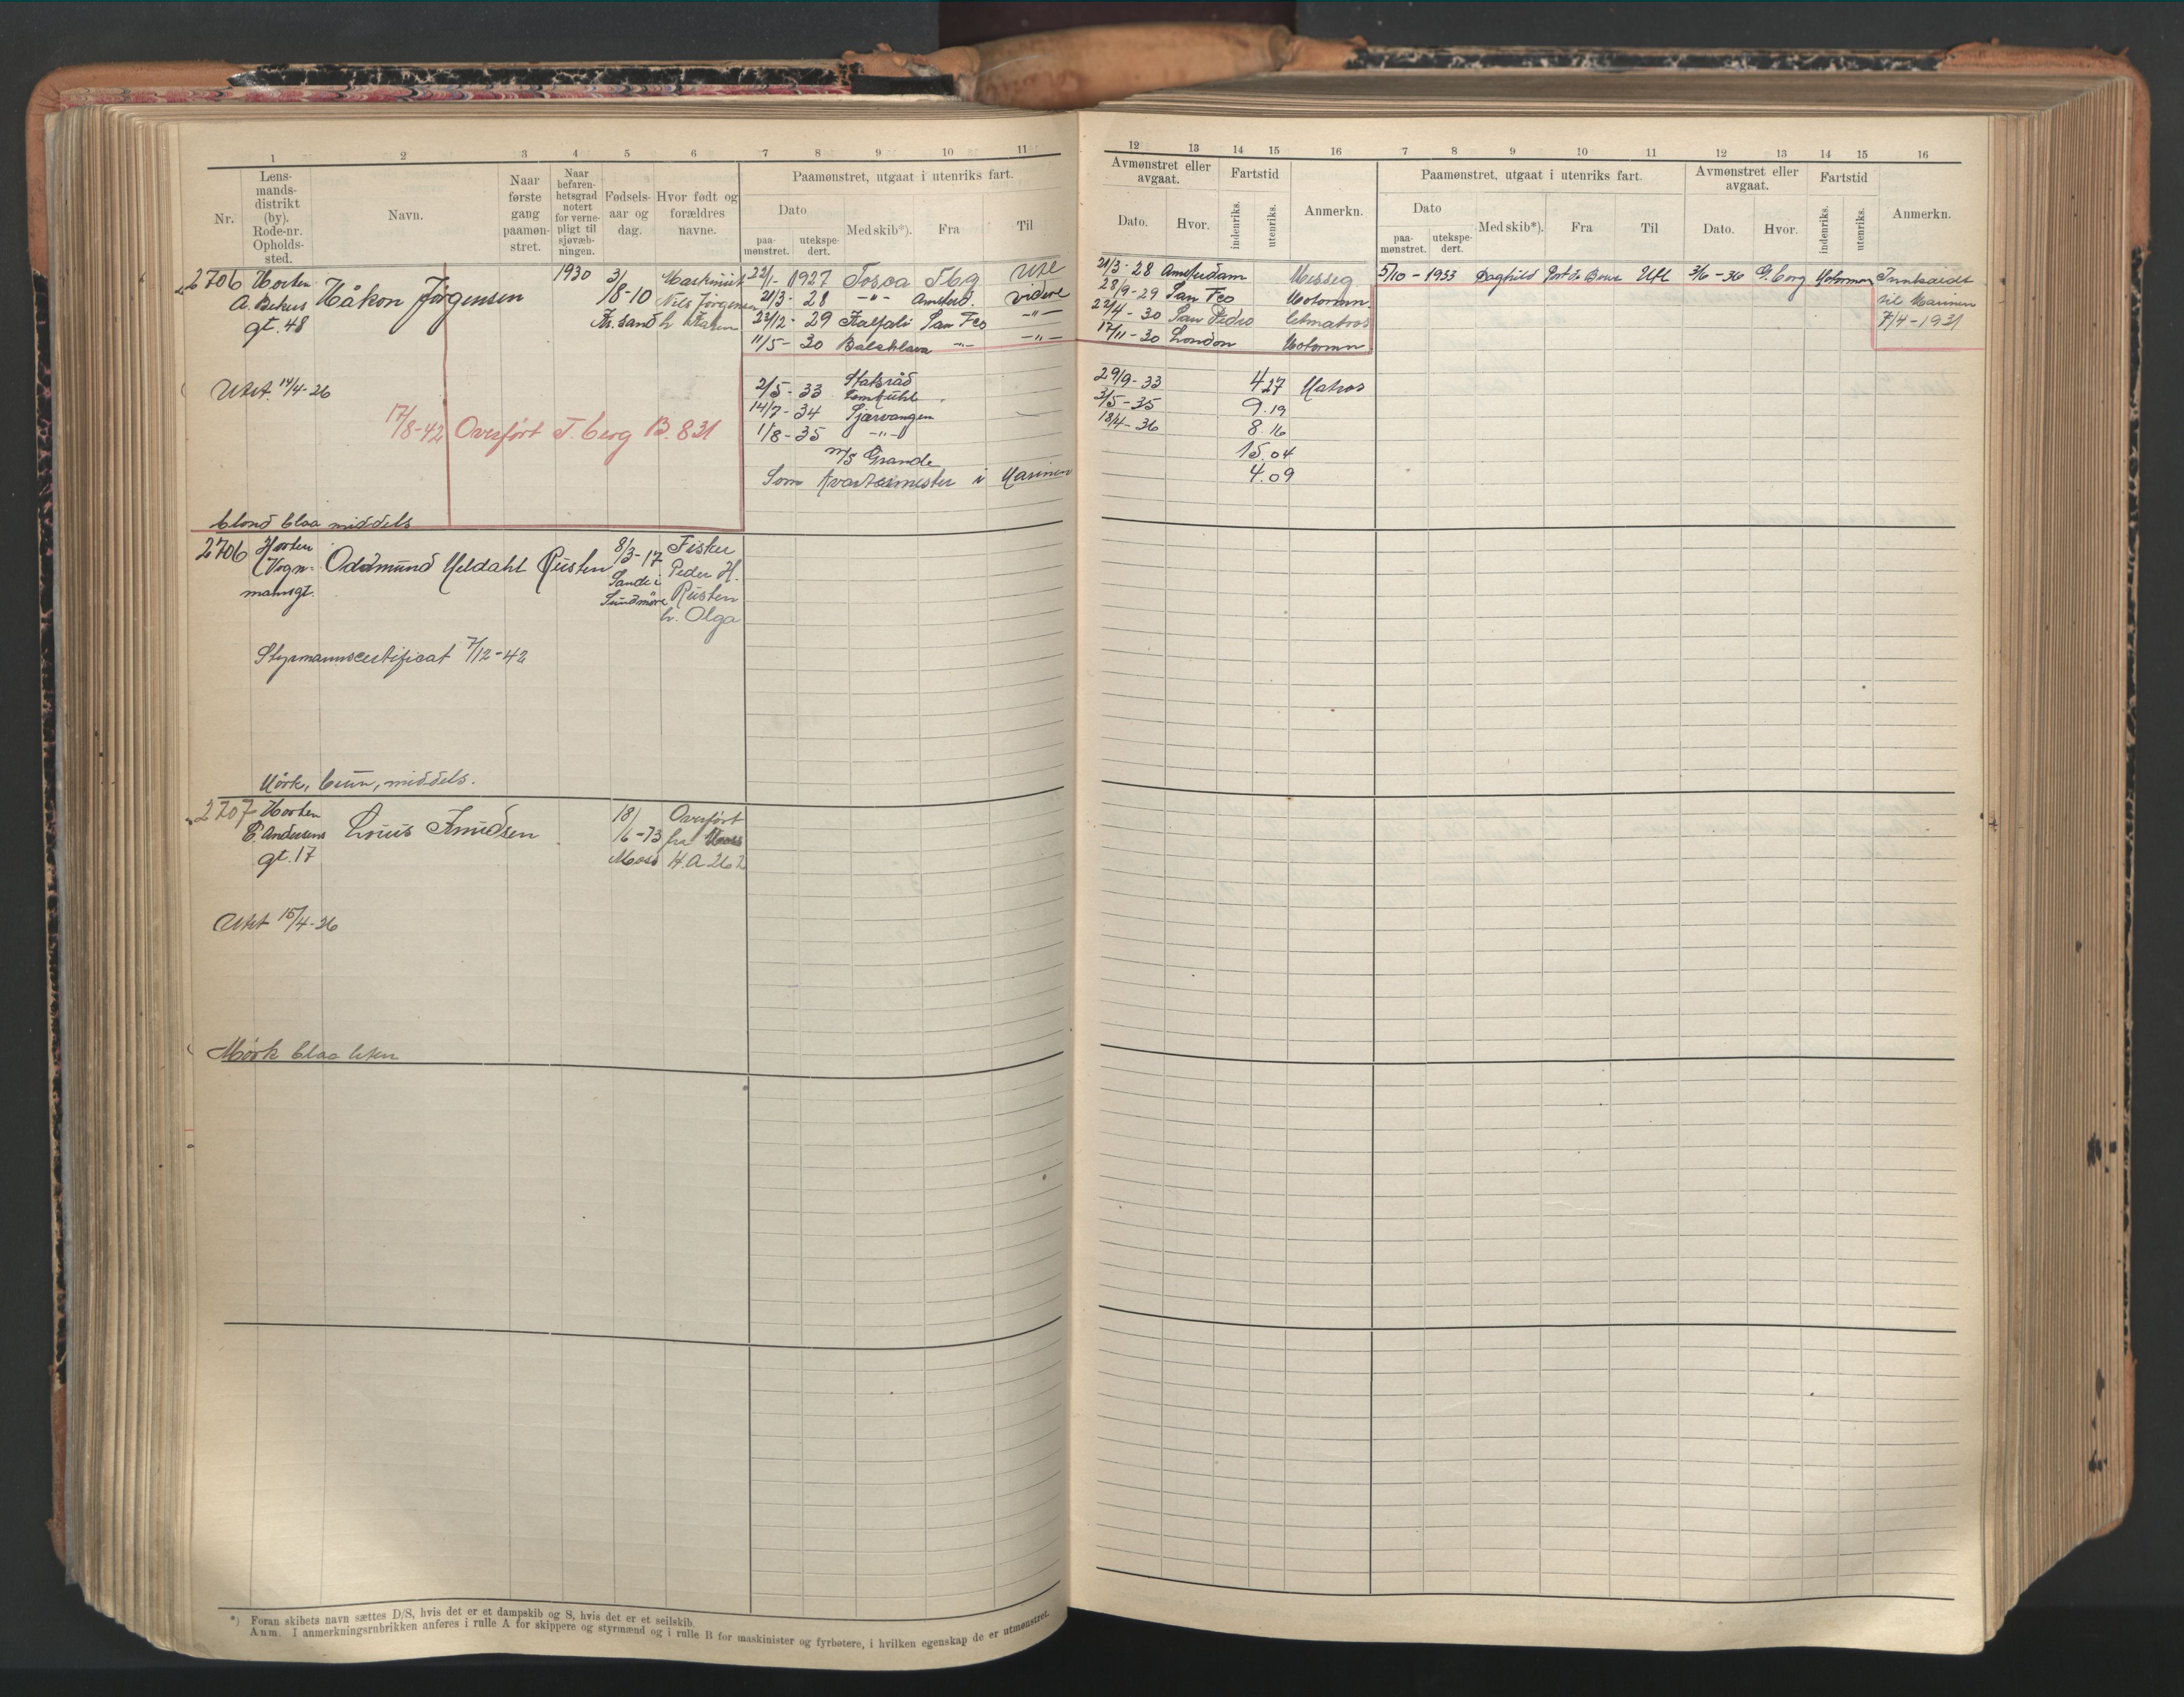 1 2 3 4 5 6 7 8 9 10 11
Nr.
Lens-
mands-
distrikt
(by).
Rode-nr.
Opholds-
sted.
Navn.
Naar
første
gang
paamøn-
stret.
Naar
befaren-
hetsgrad
notert
for verne-
pligt til
sjøvæb-
ningen.
Fødsels-
aar og
dag.
Hvor født og
forældres
navne.
Paamønstret, utgaat i utenriks fart.
Dato
paa-
mønstret.
utekspe-
dert.
Med skib*).
Fra
Til
2706 Horten
A. Bekus
gt. 48
Håkon Jørgensen
1930
3/
/8-10
Kr. sand
Maskinist
Nils Jørgensen
h
22/1- 1927 Tosca Tbg Utl
21/3- 28 -"- Amsterd. videre
22/12- 29 Kalfali San Fco -"-
11/5- 30 Balaklava -"- -"-
Utst. 14/4-26
2/5-33 Statsråd
Lemkuhl
14/7-34 Sjarvangen
1/8-35 -"-
m/s Grande
Som kvartermester i Marinen
17/8-42 Overført T.berg B.831
blond blaa middels
2706 Horten
Vogn-
mannsgt.
Oddmund Meldahl Rusten
8/3-17
Sande i
Sundmøre
Fisker
Peder H.
Rusten
h. Olga
Styrmannscertificat 7/12-42
Mørk, brun, middels.
2707 Horten
E. Andersens
gt. 17
Louis Knudsen
18/
/6-73
Moss
Overført
fra Moss
H.A 262
Utst 15/4-26
Mørk blaa liten
*) Foran skibets navn sættes D/S, hvis det er et dampskib og S, hvis det er et seilskib.
Anm. I anmerkningsrubrikken anføres i rulle A for skippere og styrmænd og i rulle B for maskinister og fyrbøtere, i hvilken egenskap de er utmønstret.
12 13 14 15 16 7 8 9 10 11 12 13 14 15 16
Avmønstret eller
avgaat.
Dato.
Hvor.
Fartstid
indenriks.
utenriks.
Anmerkn.
Paamønstret, utgaat i utenriks fart.
Dato
paa-
mønstret.
utekspe-
dert.
Med skib*).
Fra
Til
Avmønstret eller
avgaat.
Dato.
Hvor.
Fartstid
indenriks.
utenriks.
Anmerkn.
21/3-28 Amsterdam Messeg
28/9-29 San Fco Motormn
22/4-30 San Pedro letmatros
17/11-30 London Motormn
5/10-1933 Daghild Utl 3/6-36 G.borg Motorman
Innkaldt
til Marinen
7/4-1931
29/9-33 4 27 Matros
3/5-35 9.19
18/4-36 8.16
15.04
4.09